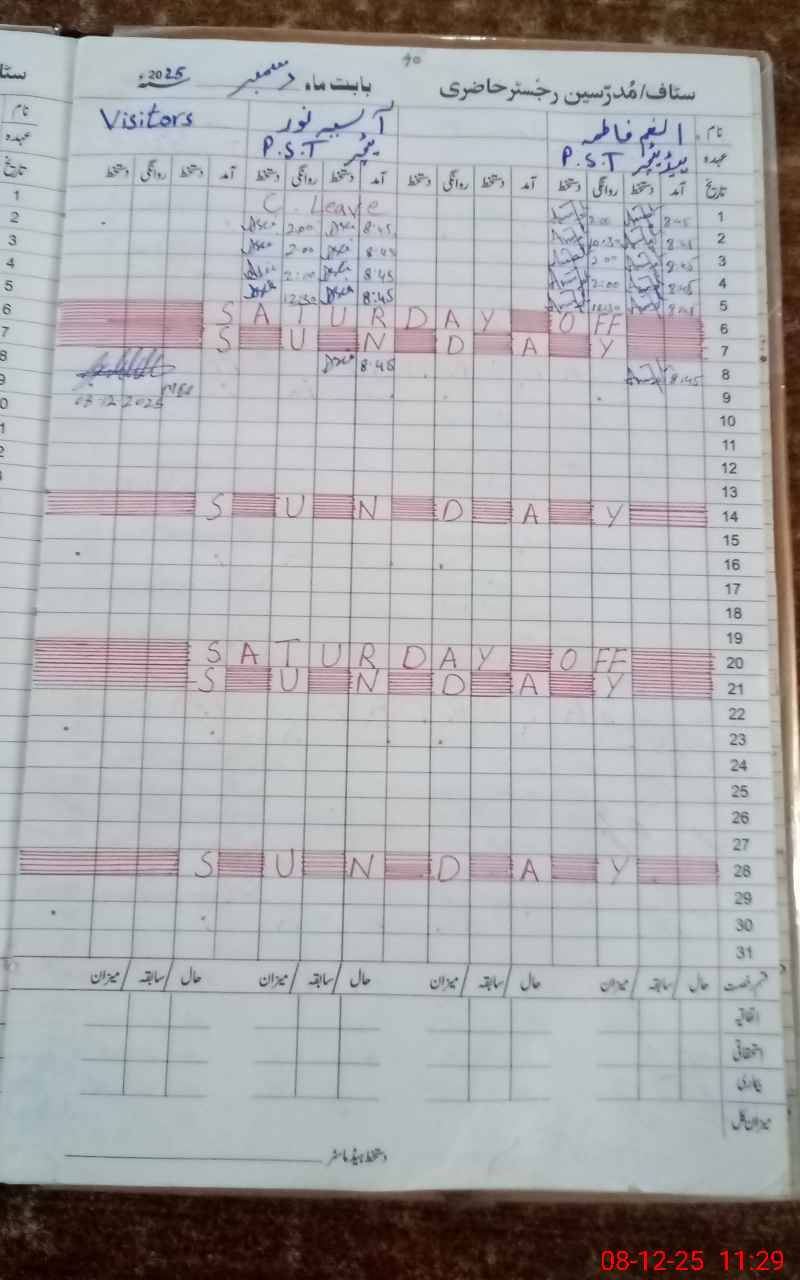 سٹاف/مُدرّسین رجسٹر حاضری بابت ماہ دسمبر 2025ء
نام فاطمہ آسیہ نور Visitors
عہدہ P.S.T ٹیچر P.S.T
تاریخ آمد دستخط روانگی دستخط آمد دستخط روانگی دستخط آمد دستخط روانگی دستخط آمد دستخط روانگی دستخط
1 8:45 2:00 C. Leave
2 8:45 10:30 8:45 2:00
3 8:45 2:00 8:45 2:00
4 8:45 2:00 8:45 2:00
5 8:45 12:30 8:45 12:30
6 SATURDAY OFF
7 SUNDAY
8 8:45 8:45
9 08.12.2025
10
11
12
13
14 SUNDAY
15
16
17
18
19
20 SATURDAY OFF
21 SUNDAY
22
23
24
25
26
27
28 SUNDAY
29
30
31
قسم رخصت حال سابقہ میزان حال سابقہ میزان حال سابقہ میزان حال سابقہ میزان
اتفاقیہ
استحقاقی
بیماری
میزان کل
دستخط ہیڈ ماسٹر
08-12-25 11:29